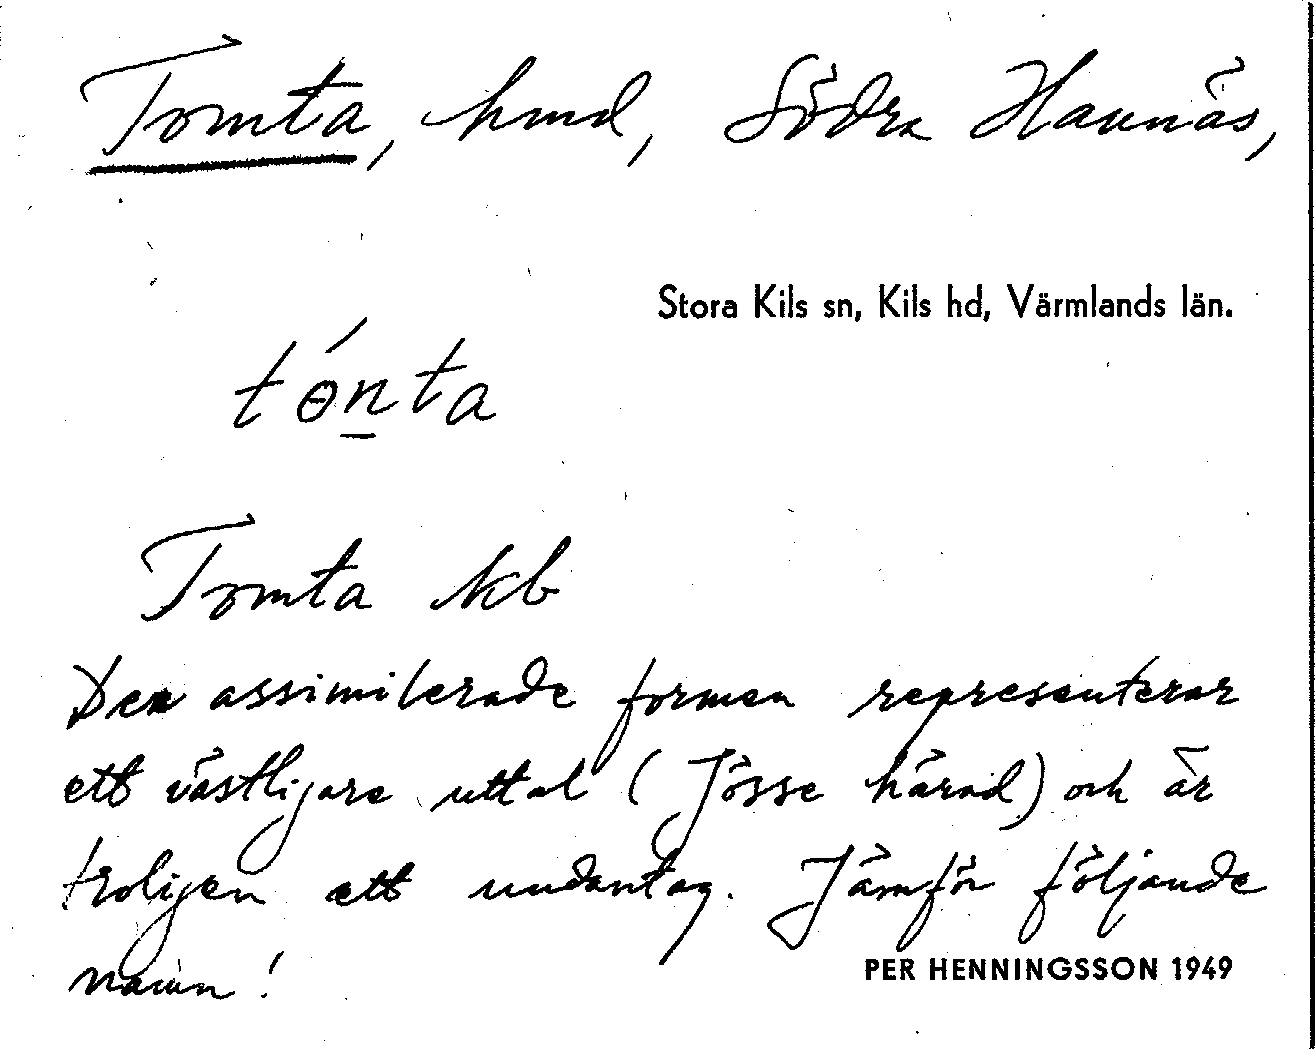 Tomta, hmd, Södra Hannäs,
Stora Kils sn, Kils hd, Värmlands län.
tɵ́n̲ta
Tomta kb
Den assimilerade formen representerar
ett västligare uttal (Jösse härad) och är
troligen ett undantag. Jämför följande
namn!
PER HENNINGSSON 1949